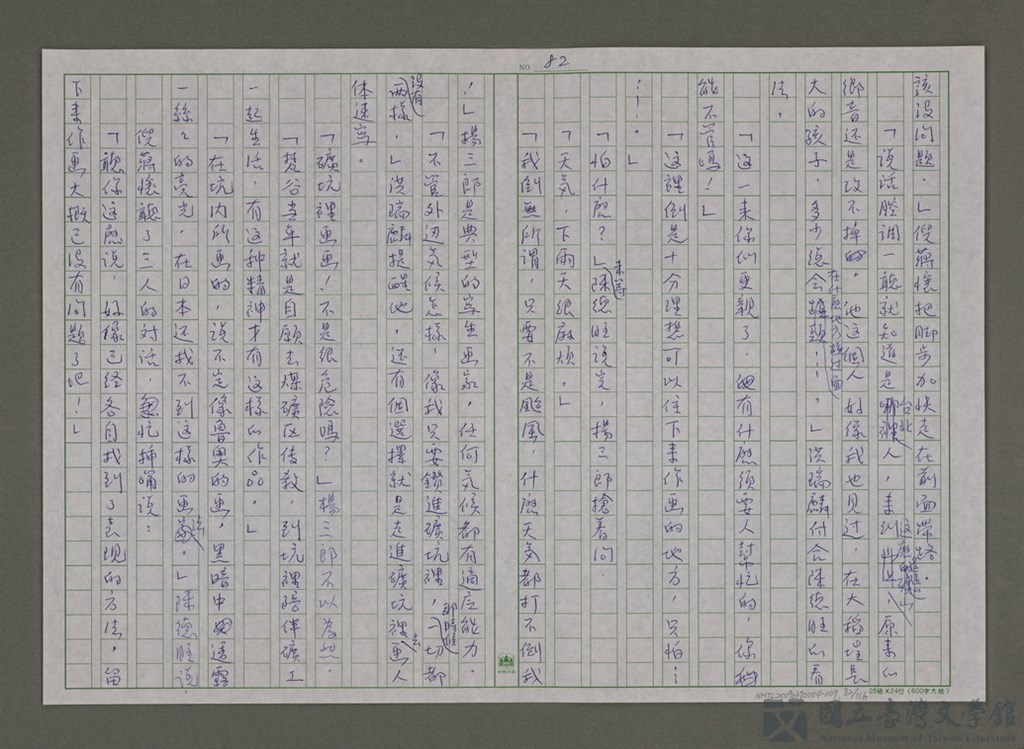 NO. 82
該沒問題。」倪蔣懷把腳步加快走在前面帶路。
「說話腔調一聽就知道是台北人,來到這麼的礦山,原來的
鄉音還是改不掉的。他這個人好像我也見過,在大稻埕長
大的孩子,多少總會在什麼地方碰過面……。」洪瑞麟付合陳德旺的看
法。
「這一來你們更親了,有什麼須要人幫忙的,你
能不管嗎!」
「這裡倒是十分理想可以住下來作画的地方,只怕…
…。」
「怕什麼?」未等陳德旺說完,楊三郎搶着問.
「天気,下雨天很麻煩。」
「我倒無所謂,只要不是颱風,什麼天気都打不倒我
!」楊三郎是典型的寫生画家,任何気候都有適应能力.
「不管外边気候怎樣,像我只要鑽進礦坑裡,那時候一切都
沒有兩樣.」洪瑞麟提醒他,还有個選擇就是走進礦坑裡去画人
体速写。
「礦坑裡画画!不是很危險嗎?」楊三郎不以為然.
「梵谷当年就是自願去煤礦区传教,到坑裡陪伴礦工
一起生活,有这种精神才有这樣的作品。」
「在坑内所画的,說不定像魯奧的画,黑暗中透露
一絲々的亮光,在日本还找不到这樣的画法。」陳德旺說
倪蔣懷聽了三人的对話,忙插嘴說:
「聽你這麼說,好像已经各自找到了表現的方法,留
下來作画大概已沒有問題了吧!」
25格×24行(600字大稿)
NMTL20090370004-009 82/116
國立臺灣文學館
National Museum of Taiwan Literature